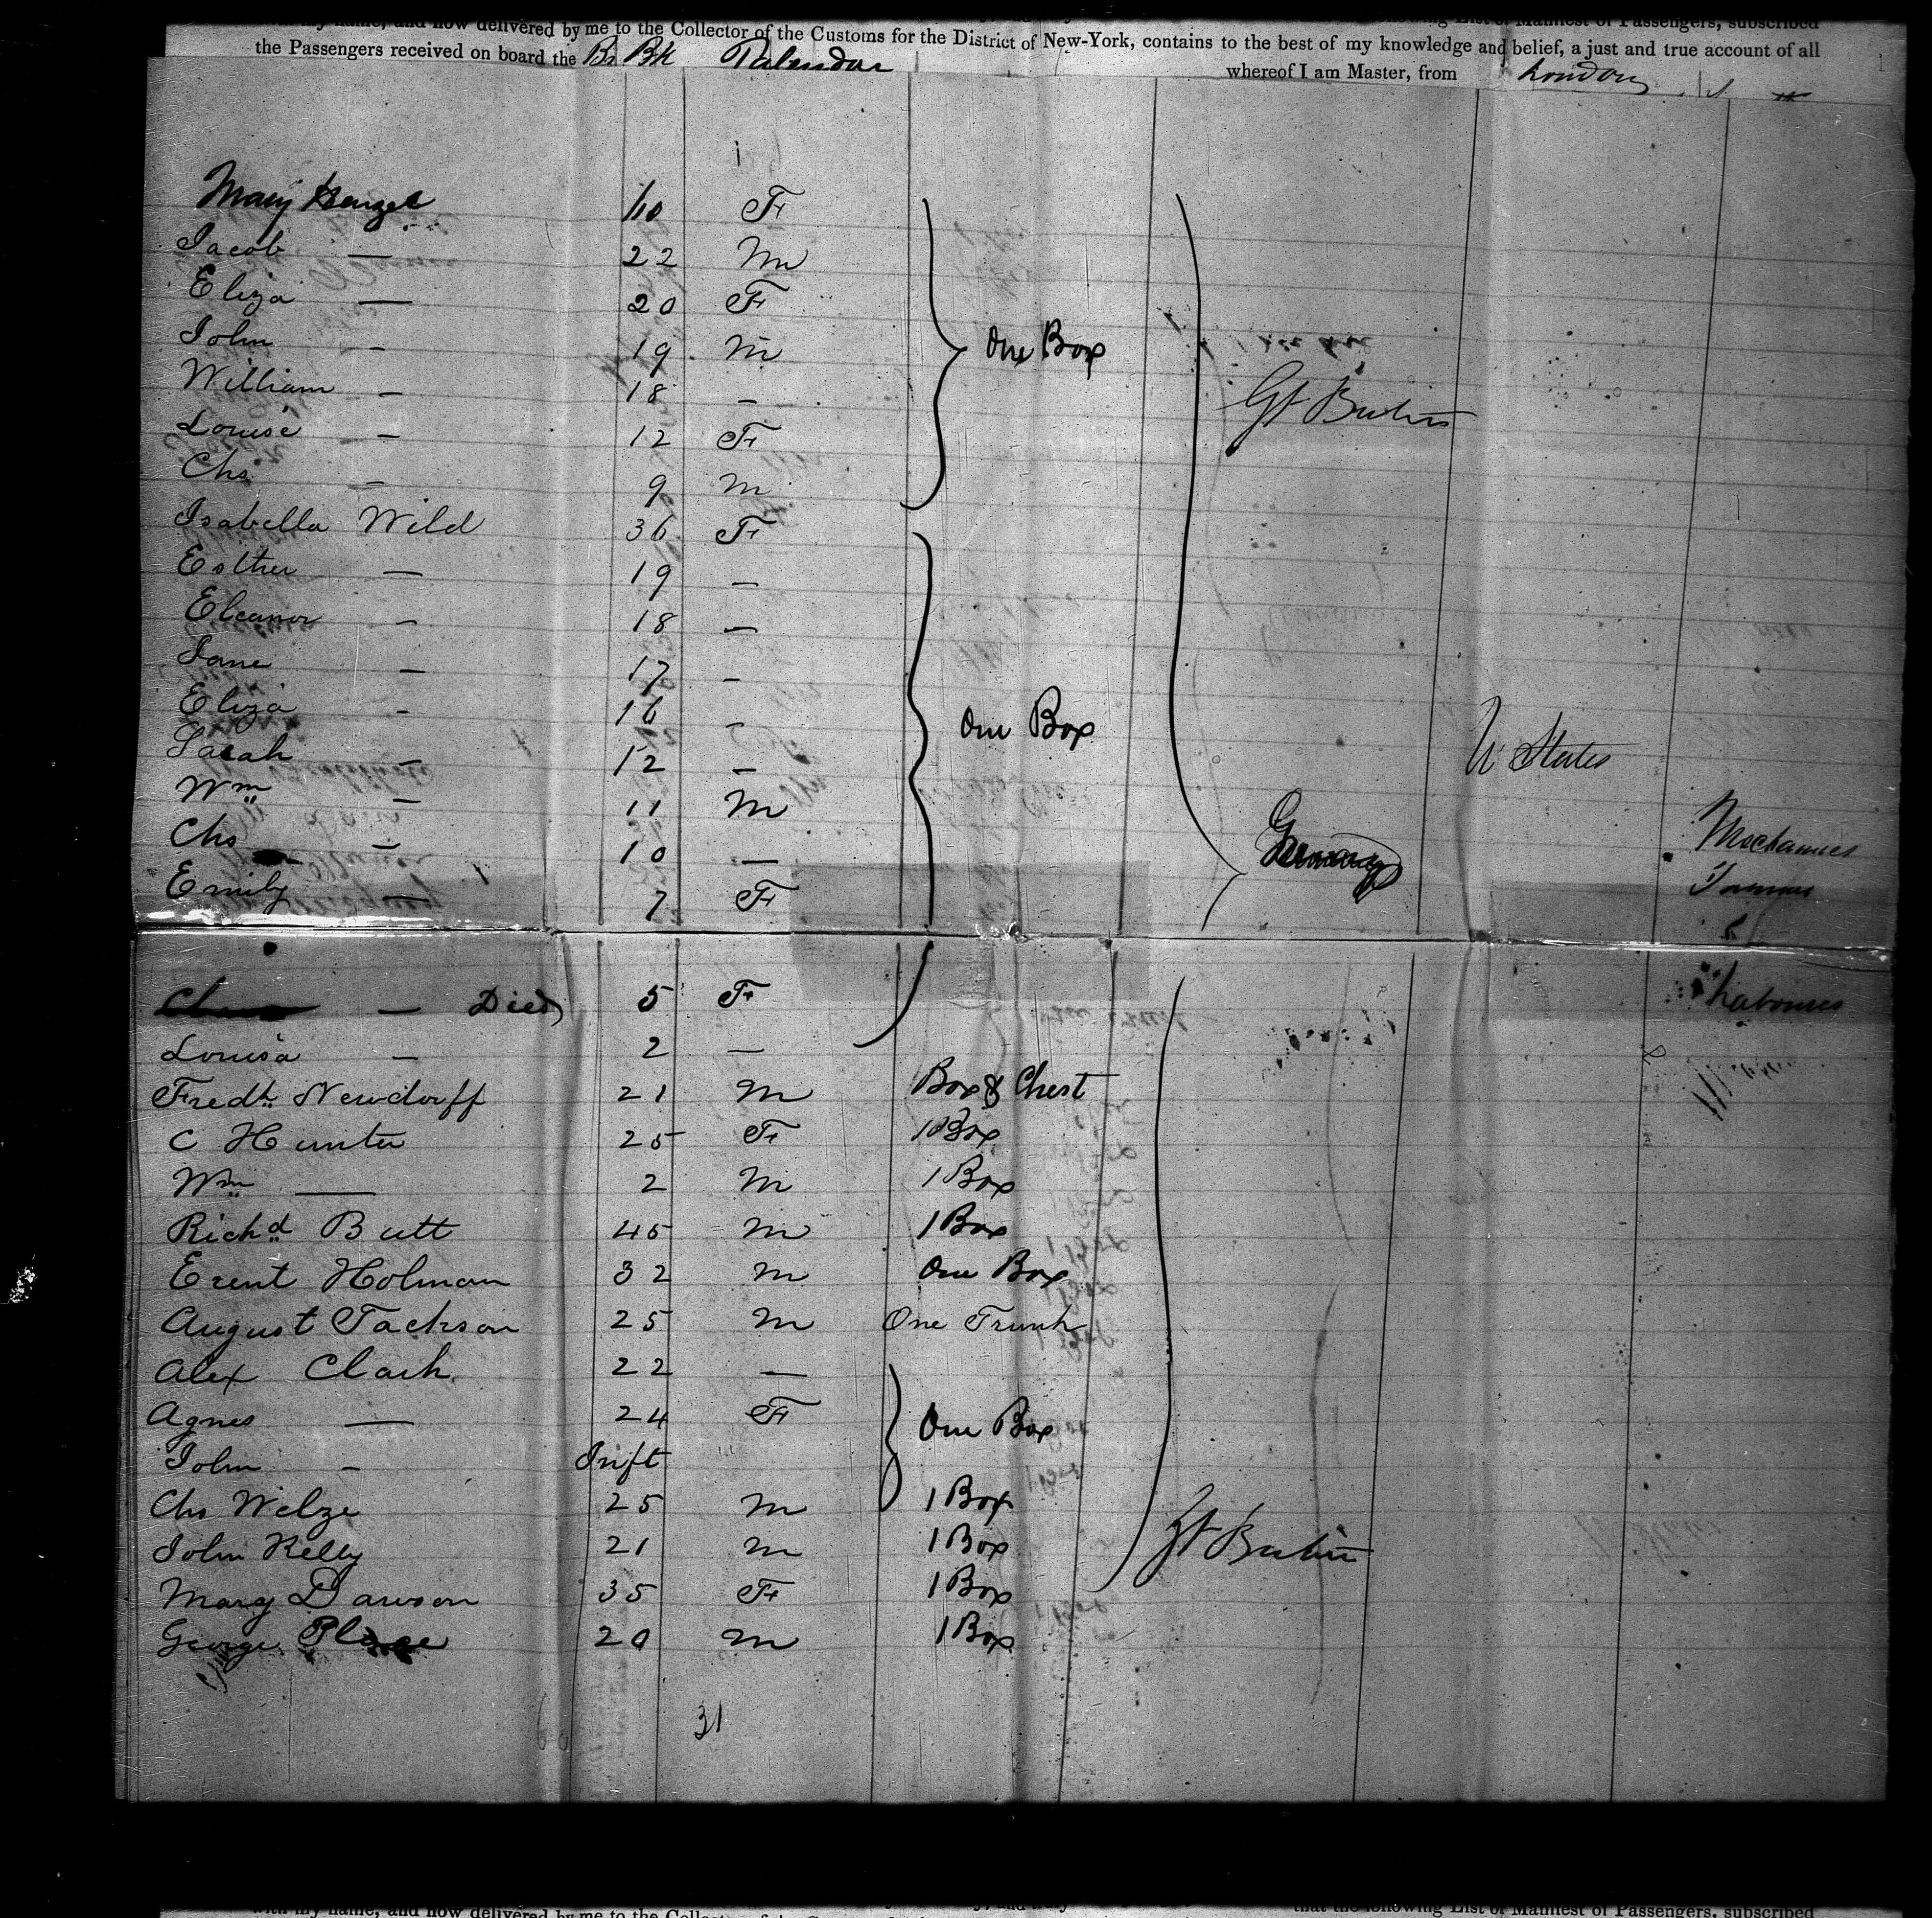 with my name, and now delivered by me to the Collector of the Customs for the District of New-York, contains to the best of my knowledge and belief, a just and true account of all
the Passengers received on board the Br Bk
whereof I am Master, from London
following List or Manifest of Passengers, subscribed
Mary 40 F
Jacob — 22 M
Eliza — 20 F
John - 19 M
William - 18 -
One Box
Gt Britain
Louise - 12 F
Chs - 9 M
Isabella Wild 36 F
Esther — 19 -
Eleanor - 18 -
Jane - 17 -
Eliza - 16 -
One Box
U States
Sarah - 12 -
Wm - 11 M
Germany
Mechanics
Chs - 10 —
Emily — 7 F
— Died 5 F
Labourers
Louisa - 2 —
Fredk Newdorff 21 M Box & Chest
C Hunter 25 F 1 Box
Wm — 2 M 1 Box
Richd Butt 45 M 1 Box
Erent Holman 32 M One Box
August Jackson 25 M One Trunk
Alex Clark 22 —
Agnes — 24 F One Box
John - Inft
Chs Welze 25 M 1 Box
John Kelly 21 M 1 Box
Gt Britain
Mary Dawson 35 F 1 Box
George 20 M 1 Box
31
with my name, and now delivered by me to the
that the following List or Manifest of Passengers, subscribed